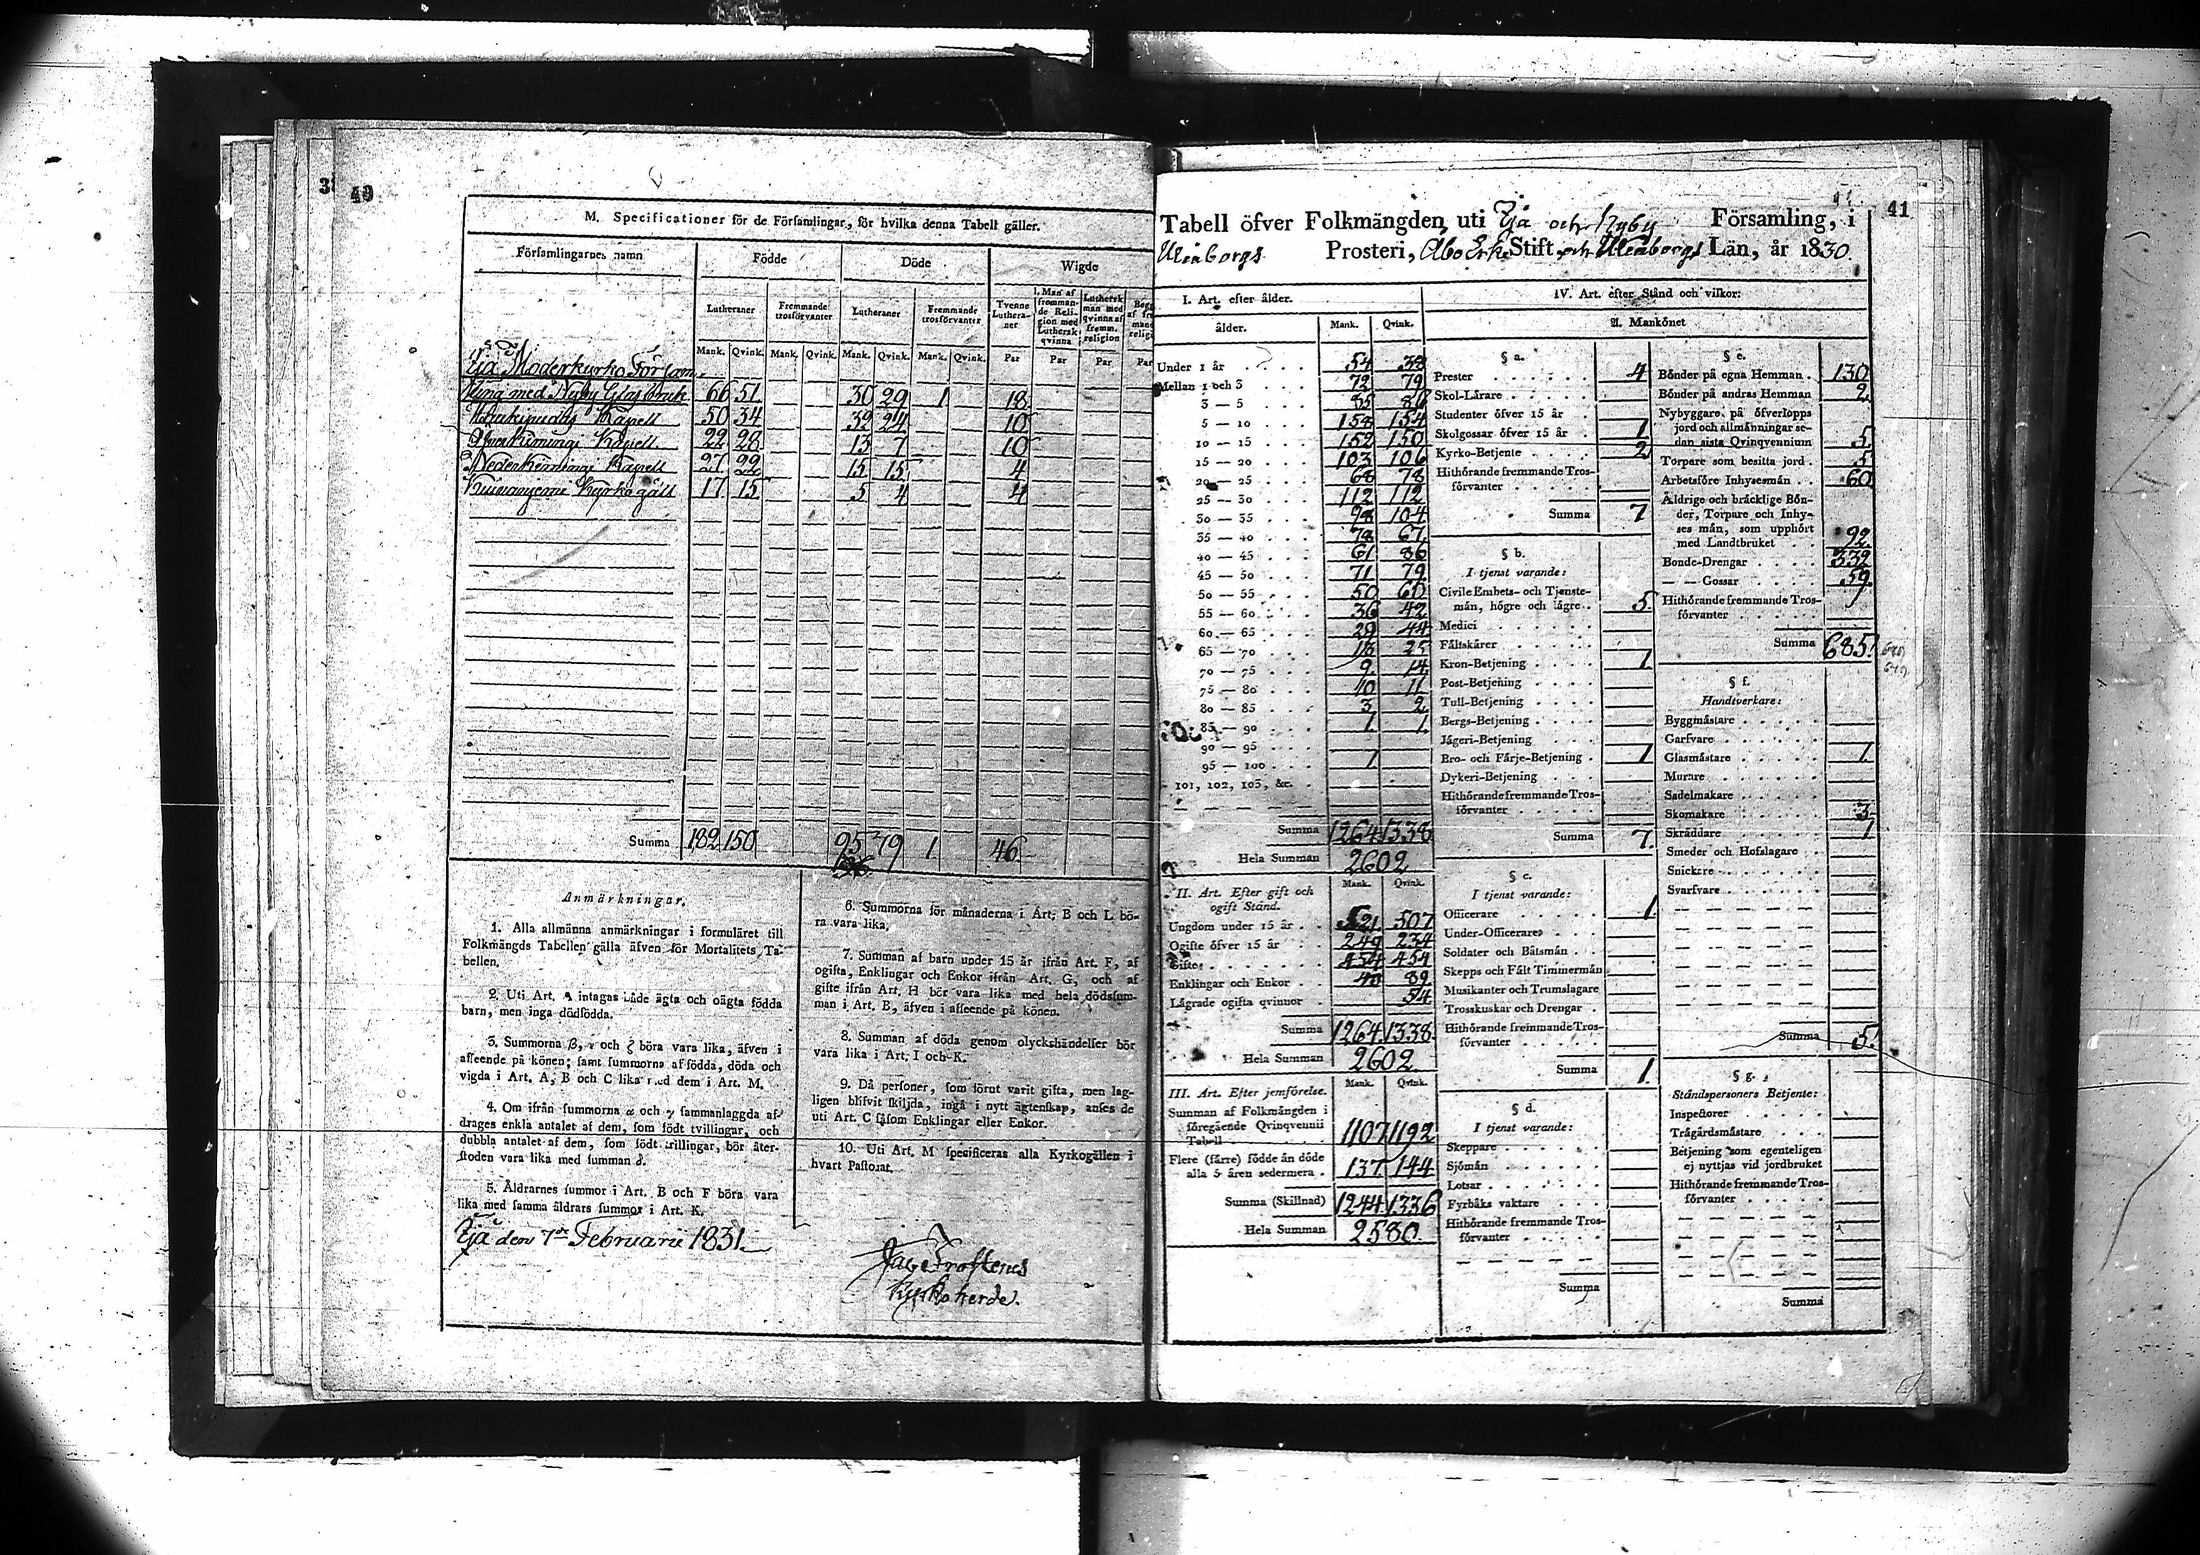 40
M. Specificationer för de Församlingar, för hvilka denna Tabell gäller.
Församlingarnes namn
Födde
Döde
Wigde
Lutheraner
Fremmande trosförvanter
Lutheraner
Fremmande trosförvanter
Tvenne Lutheraner
Man af fremmande Religion med Luthersk qvinna
Luthersk man med qvinna af fremm. religion
Mank. Qvink. Mank. Qvink. Mank. Qvink. Mank. Qvink. Par Par Par Par
Ijå Moderkyrko Försam.
med Nyby Glasbruk 66 51 30 29 1 18
Kapell 50 34 32 24 10
Kiminge Kapell 22 28 13 7 10
Neder Kiminge Kapell 27 22 15 15 4
Kuivaniemi Kyrkogäll 17 15 5 4 4
Summa 182 150 95 79 1 46
Anmärkningar.
1. Alla allmänna anmärkningar i formuläret till
Folkmängds Tabellen gälla äfven för Mortalitets Ta-
bellen.
2. Uti Art. A intagas både ägta och oägta födda
barn, men inga dödfödda.
3. Summorna β, ε och ζ böra vara lika, äfven i
afseende på könen; samt summorna af födda, döda och
vigda i Art. A, B och C lika med dem i Art. M.
4. Om ifrån summorna α och γ sammanlaggda af-
drages enkla antalet af dem, som födt tvillingar, och
dubbla antalet af dem, som födt trillingar, bör åter-
stoden vara lika med summan δ.
5. Åldrarnes summor i Art. B och F böra vara
lika med samma åldrars summor i Art. K.
6. Summorna för månaderna i Art. B och L bö-
ra vara lika.
7. Summan af barn under 15 år ifrån Art. F, af
ogifta, Enklingar och Enkor ifrån Art. G, och af
gifte ifrån Art. H bör vara lika med hela dödssum-
man i Art. B, äfven i afseende på könen.
8. Summan af döda genom olyckshändelser bör
vara lika i Art. I och K.
9. Då personer, som förut varit gifta, men lag-
ligen blifvit skiljda, ingå i nytt ägtenskap, anses de
uti Art. C såsom Enklingar eller Enkor.
10. Uti Art. M specificeras alla Kyrkogällen i
hvart Pastorat.
Ijå den 7de Februarii 1831.
Kyrkoherde.
41
Tabell öfver Folkmängden, uti Ijå och Nyby Församling, i
Uleåborgs Prosteri, Åbo Erke Stift och Uleåborgs Län, år 1830.
I. Art. efter ålder.
ålder. Mank. Qvink.
Under 1 år 54 38
Mellan 1 och 3 72 79
3 — 5 85
5 — 10 158 154
10 — 15 152 150
15 — 20 103 106
20 — 25 68 78
25 — 30 112 112
30 — 35 98 104
35 — 40 78 67
40 — 45 61 86
45 — 50 71 79
50 — 55 50 60
55 — 60 36 42
60 — 65 29 44
65 — 70 18 25
70 — 75 9 14
75 — 80 10 11
80 — 85 3 2
85 — 90 1 1
90 — 95
95 — 100 1
101, 102, 103, &c.
Summa 1264 1338
Hela Summan 2602
II. Art. Efter gift och
ogift Stånd. Mank. Qvink.
Ungdom under 15 år 521 507
Ogifte öfver 15 år 249 234
Gifte 454 454
Enklingar och Enkor 40 89
Lägrade ogifta qvinnor 54
Summa 1264 1338
Hela Summan 2602
III. Art. Efter jemförelse. Mank. Qvink.
Summan af Folkmängden i
föregående Qvinqvennii
Tabell 1107 1192
Flere (färre) födde än döde
alla 5 åren sedermera 137 144
Summa (Skillnad) 1244 1336
Hela Summan 2580
IV. Art. efter Stånd och vilkor:
A. Mankönet
§ a.
Prester 4
Skol-Lärare
Studenter öfver 15 år
Skolgossar öfver 15 år 1
Kyrko-Betjente 2
Hithörande fremmande Tros-
förvanter
Summa 7
§ b.
I tjenst varande:
Civile Embets- och Tjenste-
män, högre och lägre 5
Medici
Fältskärer
Kron-Betjening 1
Post-Betjening
Tull-Betjening
Bergs-Betjening
Jägeri-Betjening
Bro- och Färje-Betjening 1
Dykeri-Betjening
Hithörande fremmande Tros-
förvanter
Summa 7
§ c.
I tjenst varande:
Officerare 1
Under-Officerare
Soldater och Båtsmän
Skepps och Fält Timmermän
Musikanter och Trumslagare
Trosskuskar och Drengar
Hithörande fremmande Tros-
förvanter
Summa 1
§ d.
I tjenst varande:
Skeppare
Sjömän
Lotsar
Fyrbåks vaktare
Hithörande fremmande Tros-
förvanter
Summa
§ e.
Bönder på egna Hemman 130
Bönder på andras Hemman 2
Nybyggare på öfverlopps
jord och allmänningar se-
dan sista Qvinqvennium 5
Torpare som besitta jord 5
Arbetsföre Inhysesmän 60
Åldrige och bräcklige Bön-
der, Torpare och Inhy-
ses män, som upphört
med Landtbruket 92
Bonde-Drengar 332
— — Gossar 59
Hithörande fremmande Tros-
förvanter
Summa 685
§ f.
Handtverkare:
Byggmästare
Garfvare
Glasmästare 1
Murare
Sadelmakare
Skomakare 3
Skräddare 1
Smeder och Hofslagare
Snickare
Svarfvare
Summa 5
§ g.
Ståndspersoners Betjente:
Inspectorer
Trägårdsmästare
Betjening som egenteligen
ej nyttjas vid jordbruket
Hithörande fremmande Tros-
förvanter
Summa